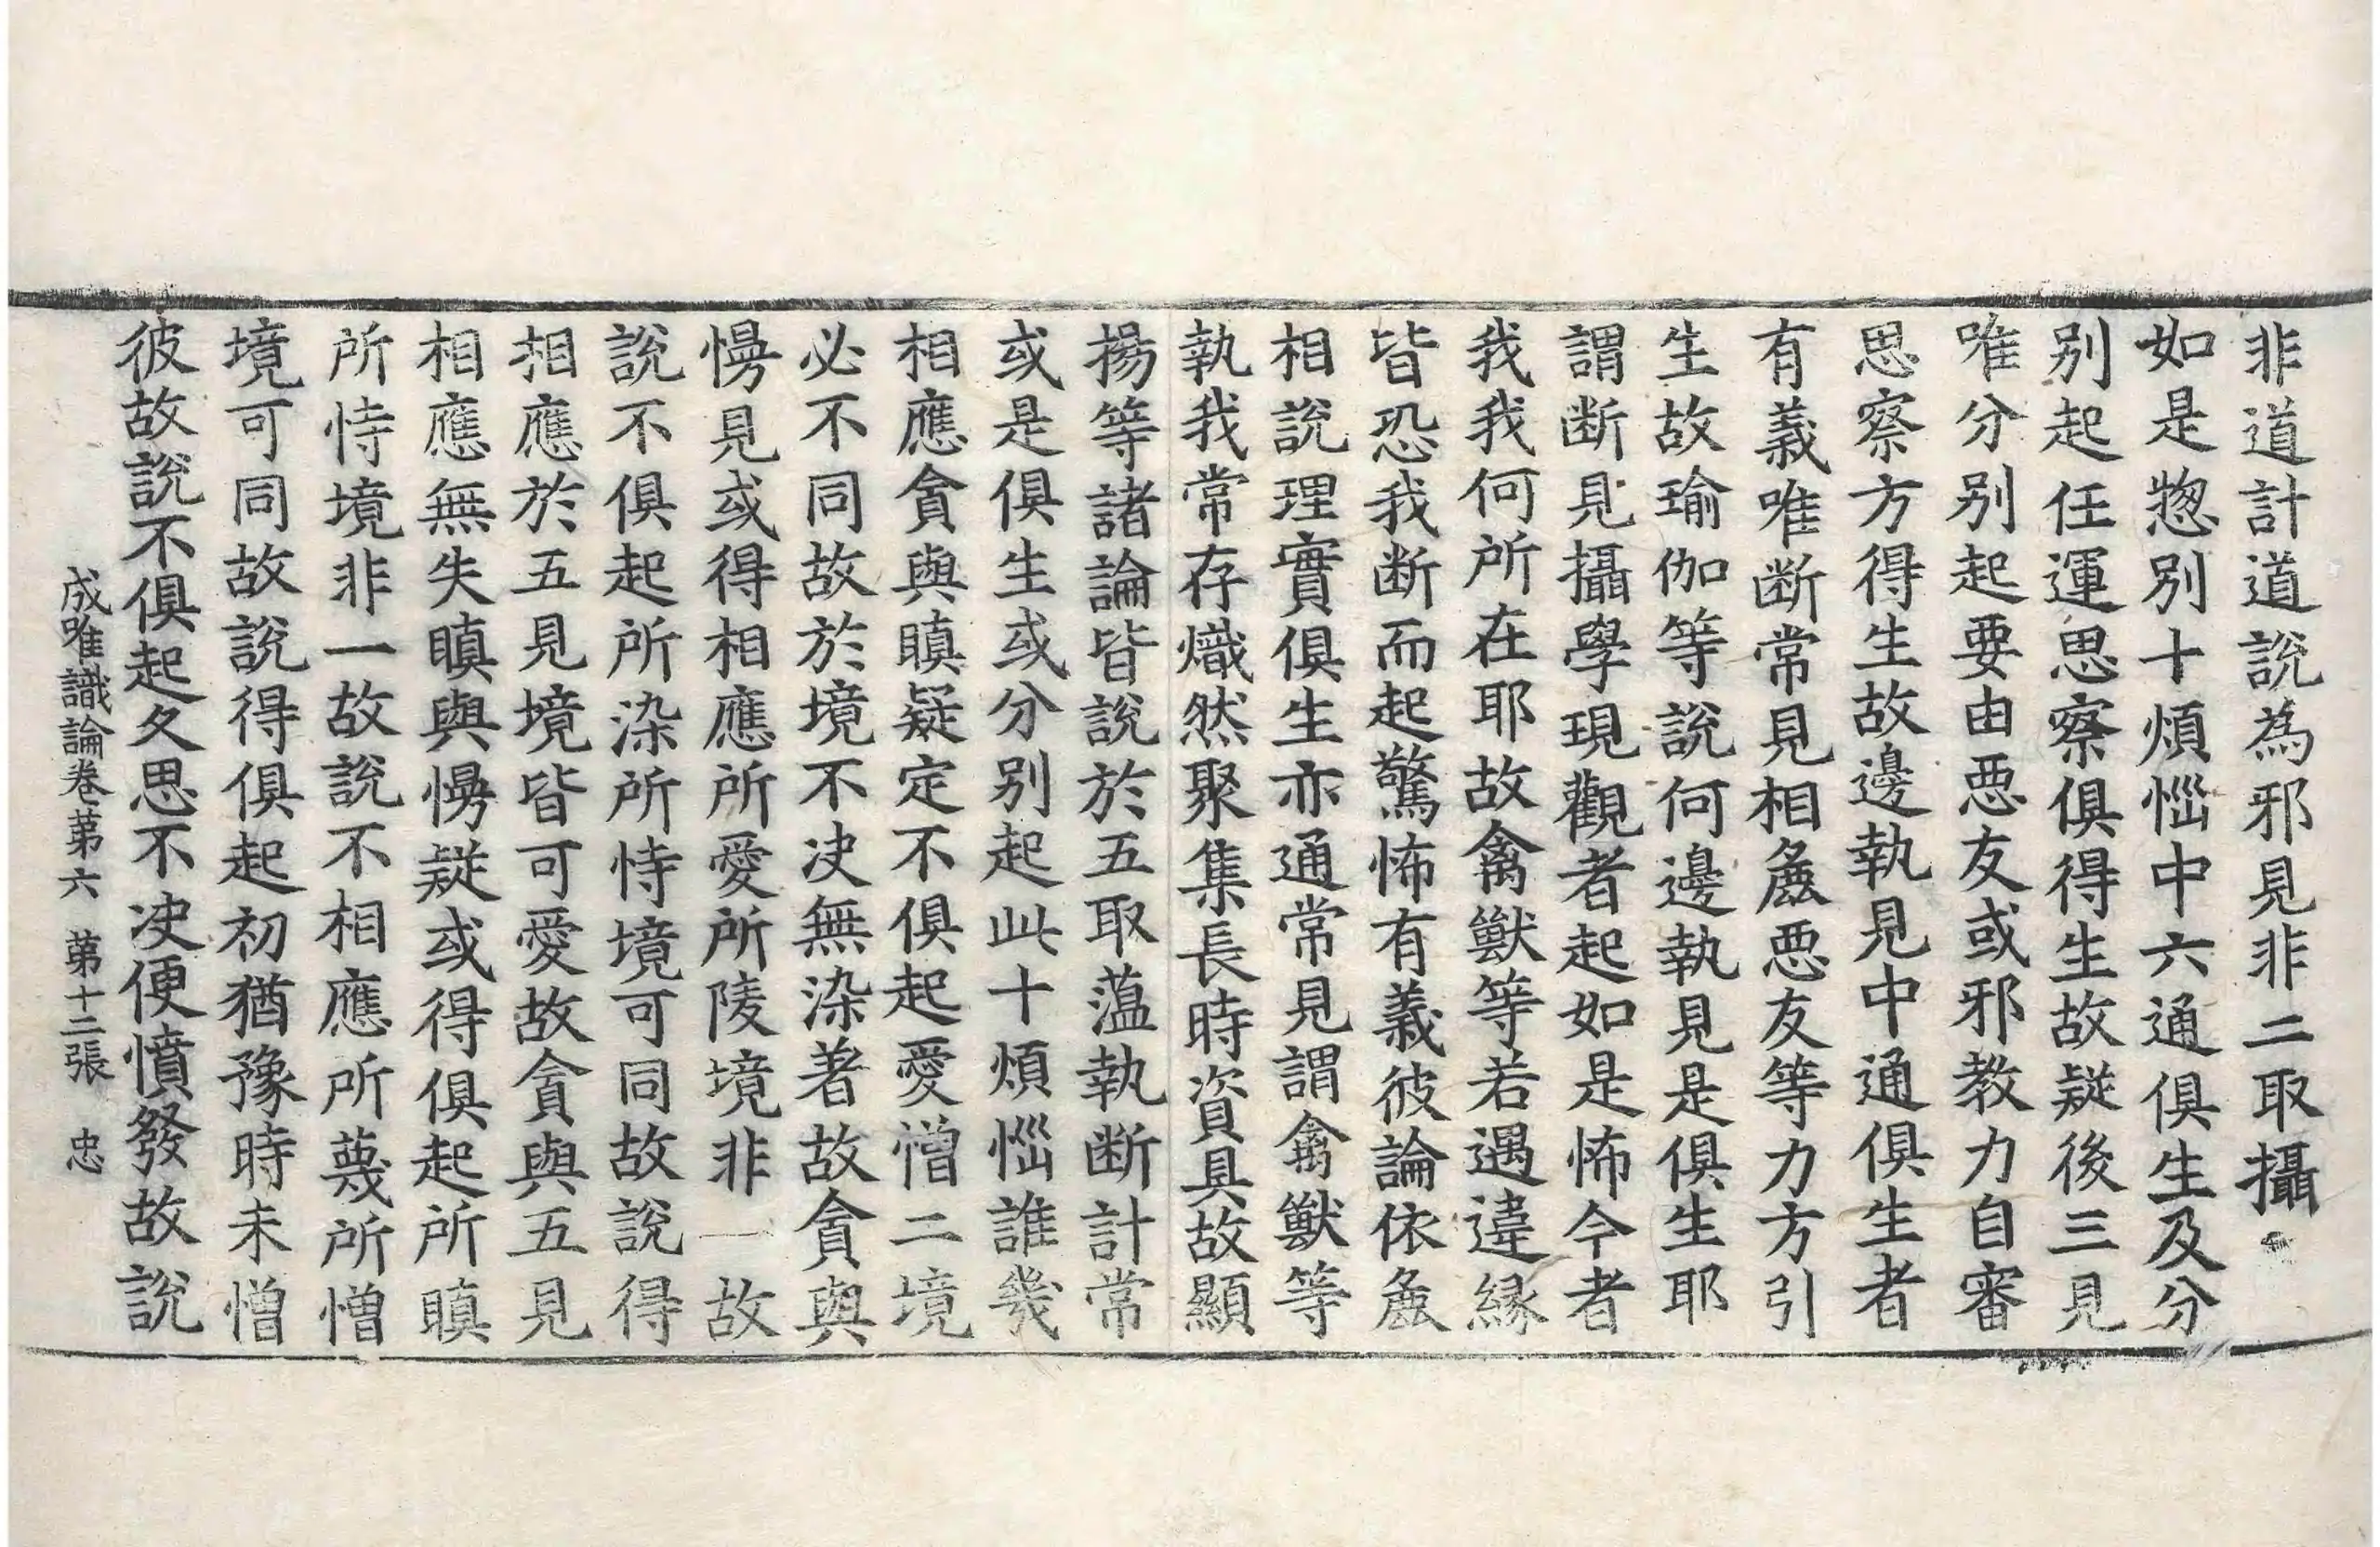 非道計道說為邪見非二取攝
如是揔別十煩惱中六通俱生及分
別起任運思察俱得生故疑後三見
唯分別起要由惡友或邪教力自審
思察方得生故邊執見中通俱生者
有義唯断常見相麁惡友等力方引
生故瑜伽等說何邊執見是俱生耶
謂断見攝學現觀者起如是怖今者
我我何所在耶故禽獸等若遇違縁
皆恐我断而起驚怖有義彼論依麁
相說理實俱生亦通常見謂禽獸等
執我常存熾然聚集長時資具故顯
揚等諸論皆說於五取薀執断計常
或是俱生或分別起此十煩惱誰幾
相應貪與瞋疑定不俱起愛憎二境
必不同故於境不决無染著故貪與
慢見或得相應所愛所陵境非一故
說不俱起所染所恃境可同故說得
相應於五見境皆可愛故貪與五見
相應無失瞋與慢疑或得俱起所瞋
所恃境非一故說不相應所蔑所憎
境可同故說得俱起初猶豫時未憎
彼故說不俱起久思不决便憤發故說
成唯識論卷第六 第十二張 忠